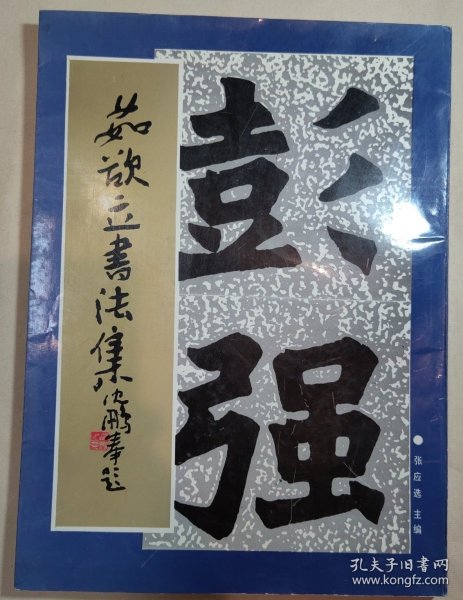 茹欲立书法集
沈鹏奉题
彭
强
张应选 主编
孔夫子旧书网
www.kongfz.com